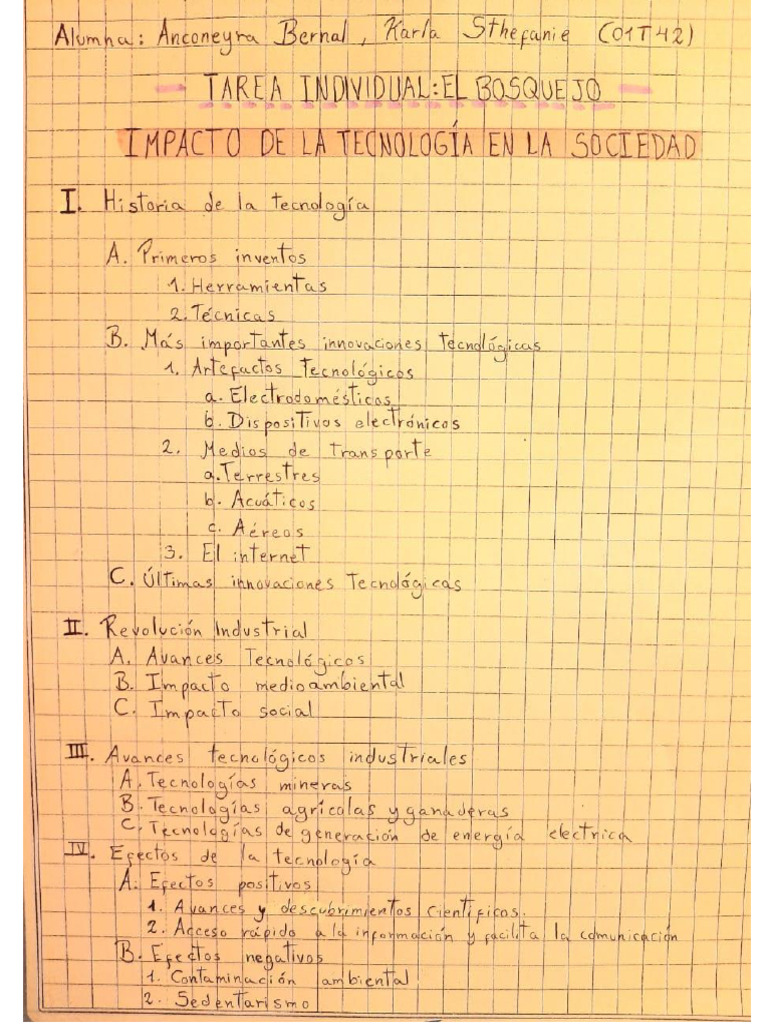 Alumna: Anconeyra Bernal, Karla Sthefanie (01T42)
TAREA INDIVIDUAL: EL BOSQUEJO
IMPACTO DE LA TECNOLOGÍA EN LA SOCIEDAD
I. Historia de la tecnología
A. Primeros inventos
1. Herramientas
2. Técnicas
B. Más importantes innovaciones tecnológicas
1. Artefactos tecnológicos
a. Electrodomésticos
b. Dispositivos electrónicos
2. Medios de transporte
a. Terrestres
b. Acuáticos
c. Aéreos
3. El internet
C. Últimas innovaciones tecnológicas
II. Revolución Industrial
A. Avances Tecnológicos
B. Impacto medioambiental
C. Impacto social
III. Avances tecnológicos industriales
A. Tecnologías mineras
B. Tecnologías agrícolas y ganaderas
C. Tecnologías de generación de energía electrica
IV. Efectos de la tecnología
A. Efectos positivos
1. Avances y descubrimientos científicos.
2. Acceso rápido a la información y facilita la comunicación
B. Efectos negativos
1. Contaminación ambiental
2. Sedentarismo